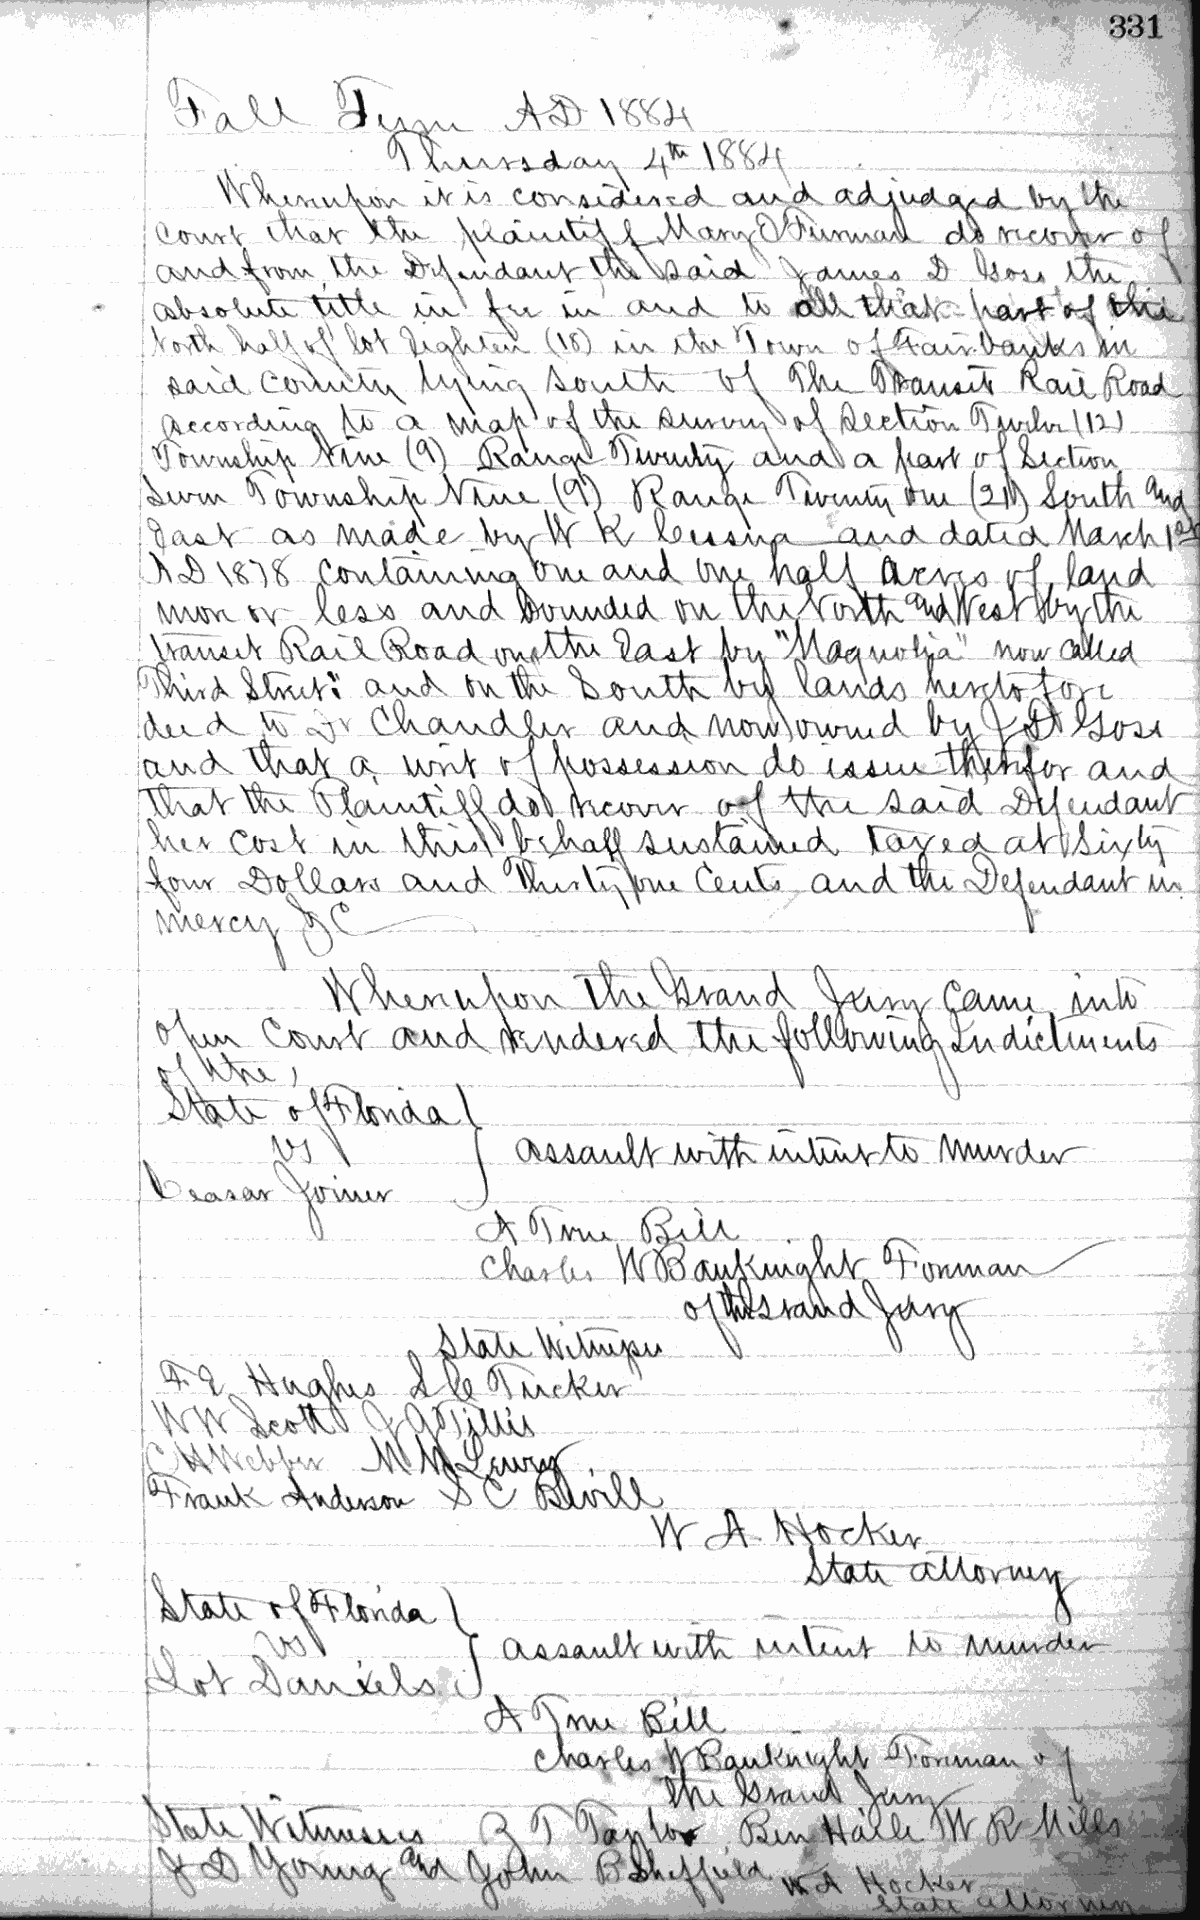 331
Fall Term AD 1884
Thursday 4th 1884
Whereupon it is considered and adjudged by the
court that the plaintiff Mary O Furman do recover of
and from the Defendant the said James D Goss the
absolute title in fee in and to all that part of the
North half of lot Eighteen (18) in the Town of Fairbanks in
said County lying South of The Transit Rail Road
according to a map of the survey of Section Twelve (12)
Township Nine (9) Range Twenty and a part of Section
Seven Township Nine (9) Range Twenty one (21) South and
East as made by W K Cessna and dated March 1st
AD 1878 containing one and one half acres of land
more or less and bounded on the North and West by the
transit Rail Road on the East by "Magnolia" now called
Third Street" and on the South by lands heretofore
deed to Dr Chandler and now owned by J D Goss
and that a writ of possession do issue therefor and
that the Plaintiff do recover of the said Defendant
her cost in this behalf sustained taxed at Sixty
four Dollars and Thirty one Cents and the Defendant in
mercy &C
Whereupon the Grand Jury came into
open Court and rendered the following Indictments
of the,
State of Florida }
vs } assault with intent to murder
Ceasar Joiner
A True Bill
Charles W Bauknight Forman
of the Grand Jury
State Witnesses
F E Hughes S C Tucker
W W Scott J G Tillis
C H Webber M M Lewry
Frank Anderson S C Bevill
W A Hocker
State attorney
State of Florida }
vs } assault with intent to murder
Lot Daniels
A True Bill
Charles W Bauknight Forman of
the Grand Jury
State Witnesses Z T Taylor Ben Haile W R Mills
J D Young and John B Sheffield W A Hocker
State attorney